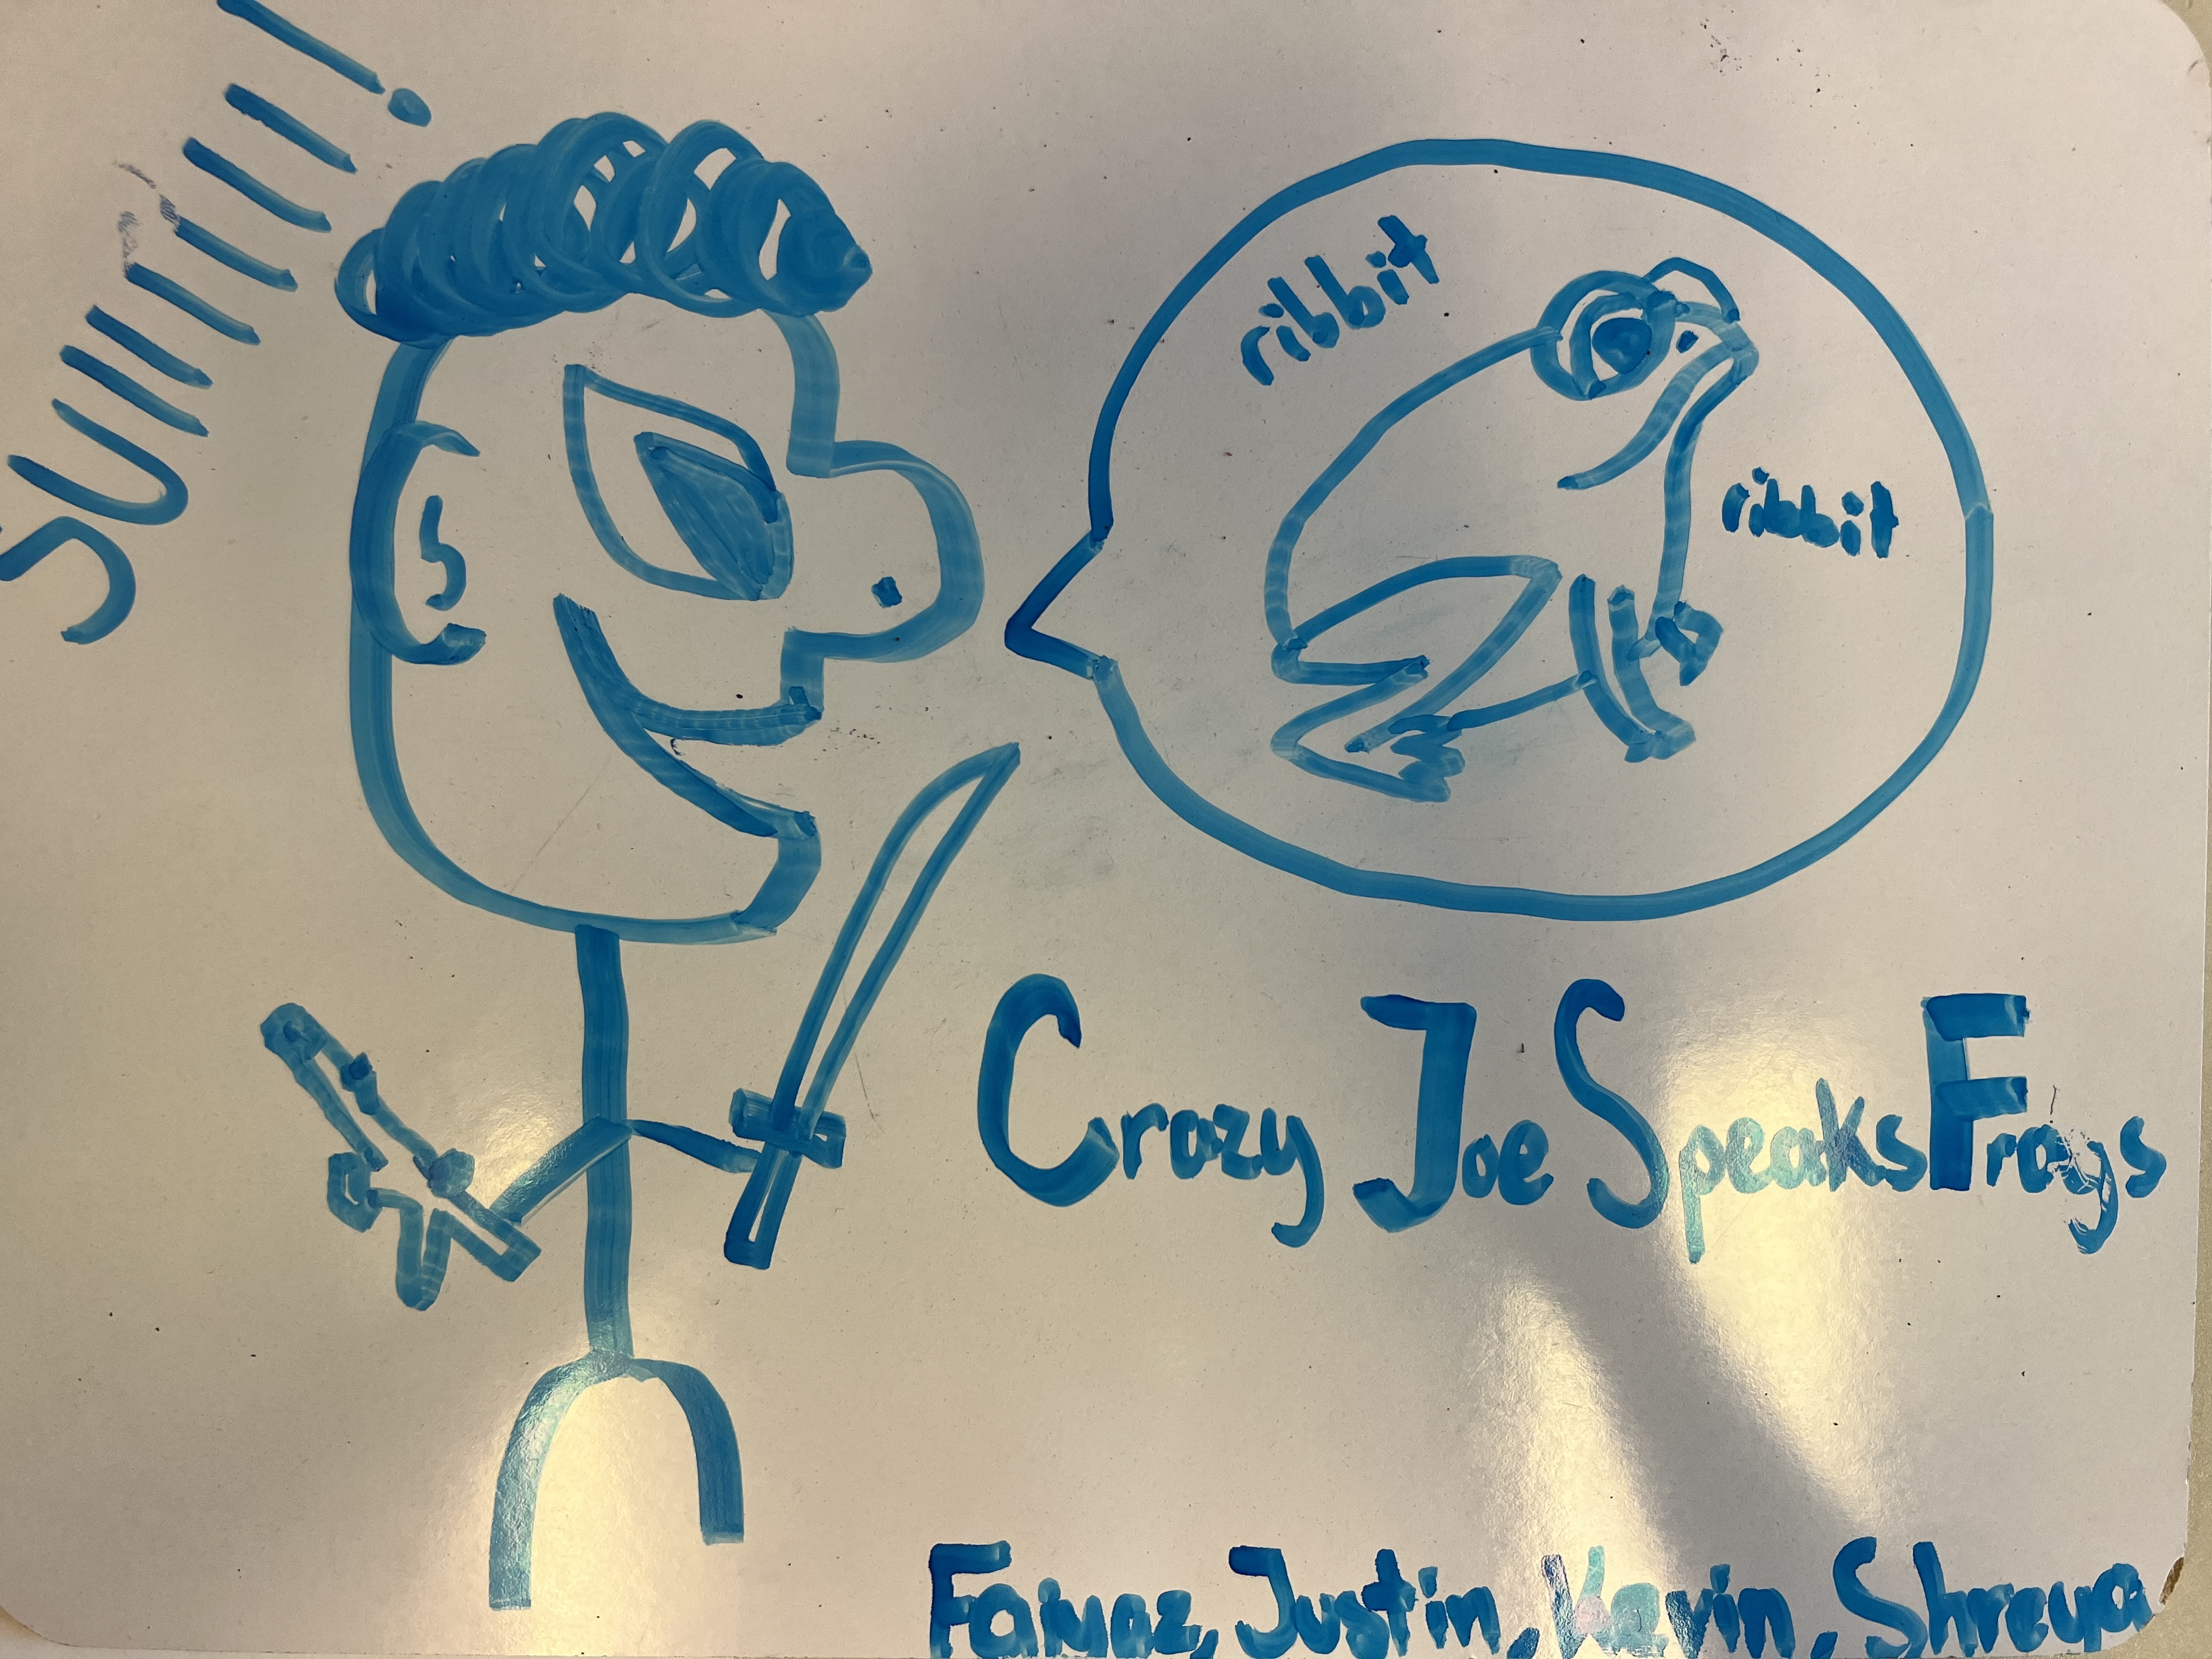 SUIIIIII!
ribbit
ribbit
Crazy Joe Speaks Frogs
Faiyaz, Justin, Kevin, Shreya